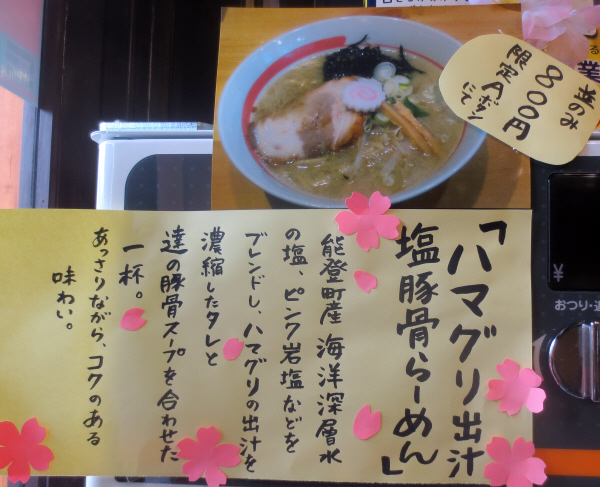 「ハマグリ出汁
塩豚骨らーめん」
能登町産 海洋深層水
の塩、ピンク岩塩などを
ブレンドし、ハマグリの出汁を
濃縮したタレと
達の豚骨スープを合わせた
一杯。
あっさりながら、コクのある
味わい。
並のみ
800円
限定Aボタン
にて
¥
おつり・